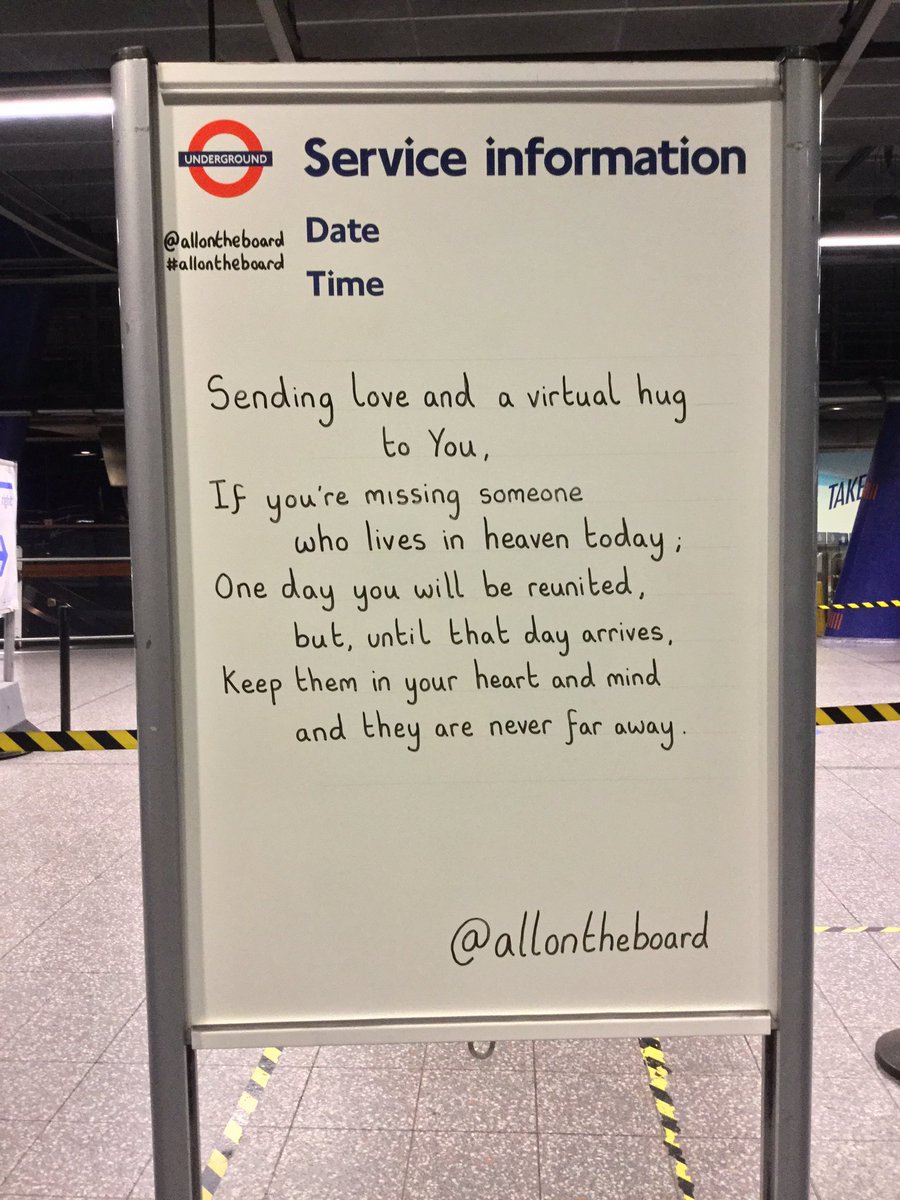 UNDERGROUND
Service information
@allontheboard
#allontheboard
Date
Time
Sending love and a virtual hug
to You,
If you're missing someone
who lives in heaven today;
One day you will be reunited,
but, until that day arrives,
Keep them in your heart and mind
and they are never far away.
@allontheboard
right
TAKE